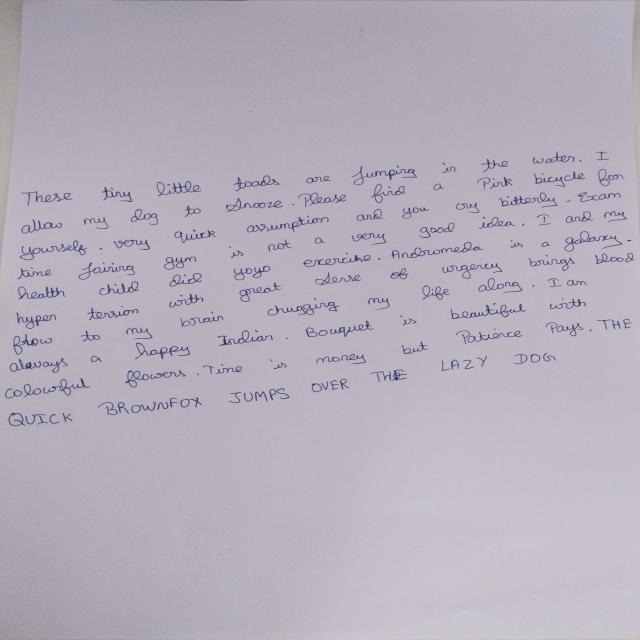 These tiny little toads are jumping in the water. I
allow my dog to snooze. Please find a Pink bicycle for
yourself. very quick assumption and you cry bitterly. Exam
time fairing gym is not a very good idea. I and my
health child did yoyo exercise. Andromeda is a galaxy.
hyper tension with great sense of urgency brings blood
flow to my brain chugging my life along. I am
always a happy Indian. Bouquet is beautiful with
colourful flowers. Time is money but Patience Pays. THE
QUICK BROWNFOX JUMPS OVER THE LAZY DOG